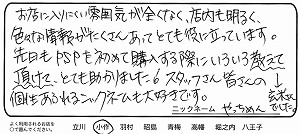 お店に入りにくい雰囲気が全くなく、店内も明るく、
色々な情報がたくさんあってとても役に立っています。
先日もPSPを初めて購入する際にいろいろ教えて
頂けて、とても助かりました。スタッフさん皆さんの
個性あふれるニックネームも大好きです。
ニックネーム やっちめん
でした。
よく利用されるお店を
○で囲んでください。
立川 小作 羽村 昭島 青梅 高幡 堀之内 八王子